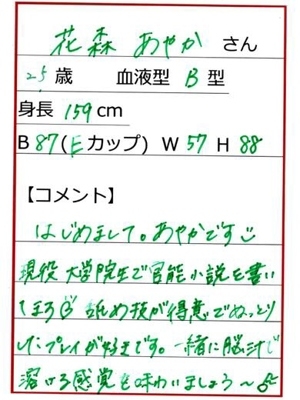 花森 あやか さん
25 歳 血液型 B 型
身長 159 cm
B 87(Eカップ) W 57 H 88
【コメント】
はじめまして。あやかです
現役大学院生で官能小説を書い
てます 舐め技が得意でねっとり
したプレイが好きです。一緒に脳汁で
溶ける感覚を味わいましょう〜